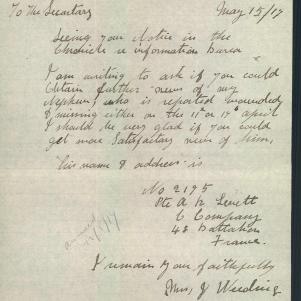 To The Secretary May 15/17
Seeing your Notice in the
Chronicle re information bureau
I am writing to ask if you could
Obtain further news of my
Nephew, who is reported wounded
& missing either on the 11th or 17th April
I should be very glad if you could
get more Satisfactory news of him,
His name & address is
No 2195
Pte A H Levett
C Company
48 Battalion
France.
answered
I remain Your faithfully
Mrs. J Weeding